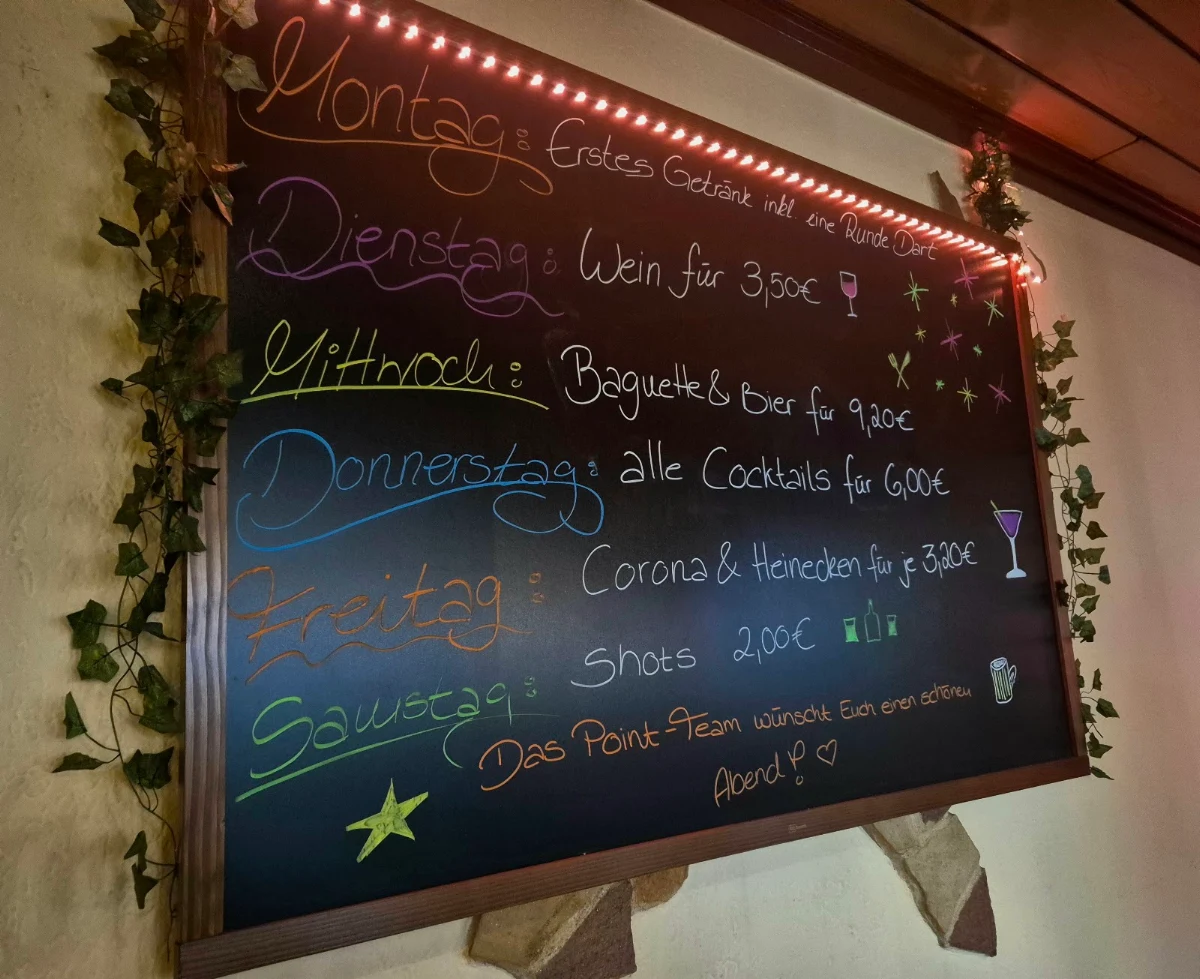 Montag: Erstes Getränk inkl. eine Runde Dart
Dienstag: Wein für 3,50€
Mittwoch: Baguette & Bier für 9,20€
Donnerstag: alle Cocktails für 6,00€
Freitag: Corona & Heinecken für je 3,20€
Samstag: Shots 2,00€
Das Point-Team wünscht Euch einen schönen
Abend!